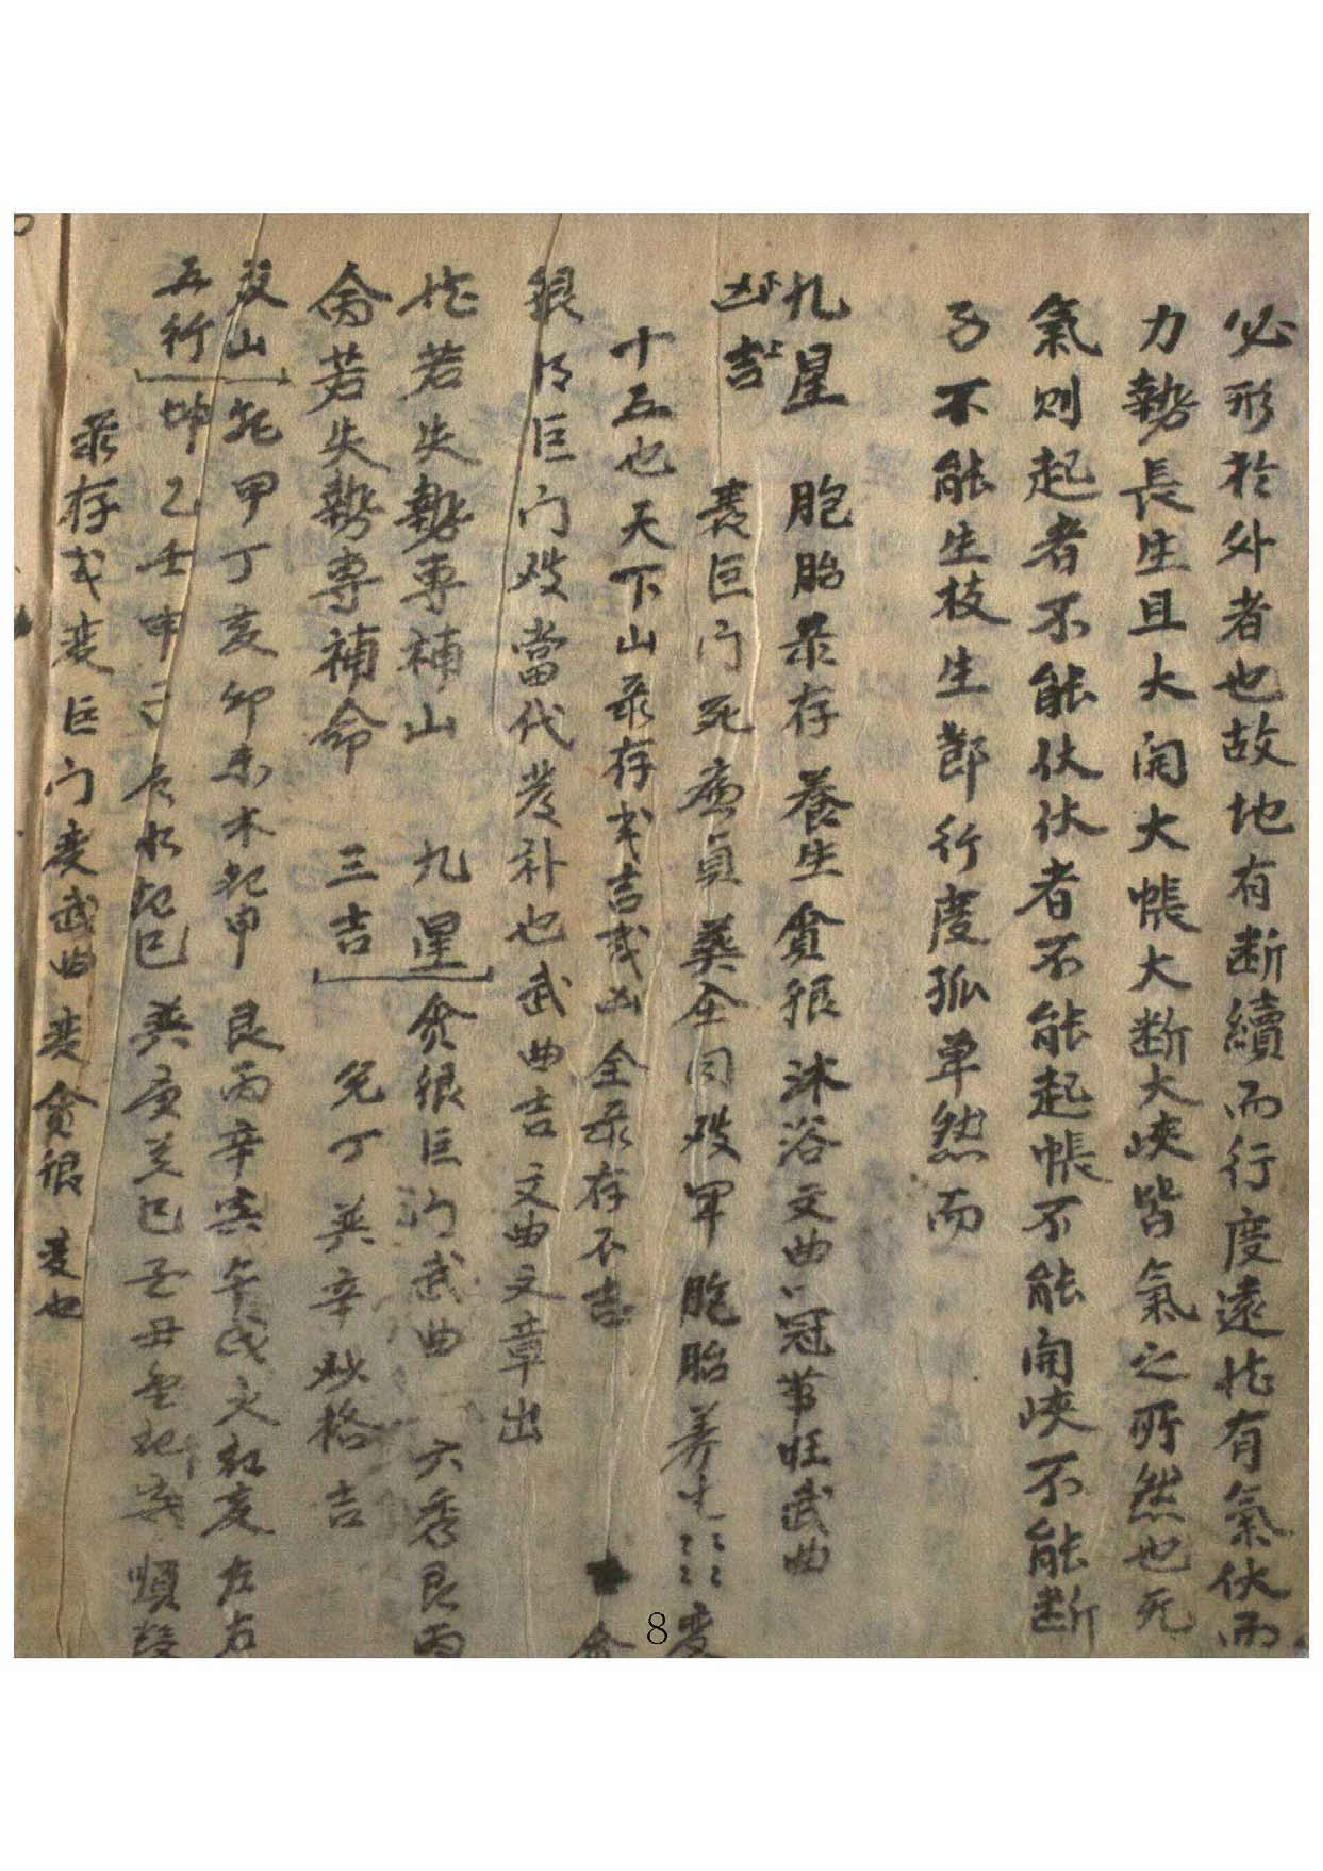 必形於外者也故地有断續而行度遠地有氣伏而
力勢長生且大開大帳大断大峽皆氣之所然也死
氣則起者不能伏伏者不能起帳不能開峽不能断
子不能生枝生節行度孤单然而
九星 胞胎彔存 養生貪狼 沐浴文曲 冠帶旺武曲
凶吉 衰巨门死廉貞 葬全同破軍 胞胎養生
十五也天下山彔存或吉或凶 全彔存不吉
狼 巨门 破當代 补也武曲吉文曲文章出
地若失勢專補山 九星 貪狼巨门武曲 六秀艮丙
命若失勢專補命 三吉 兌丁巽辛 格吉
山 甲丁亥卯未木起申 艮丙辛寅午戌火起亥左右
五行 坤乙壬申子辰水起巳 巽庚 巳丑 起寅順
彔存或变巨门变武曲变貪狼变也
8